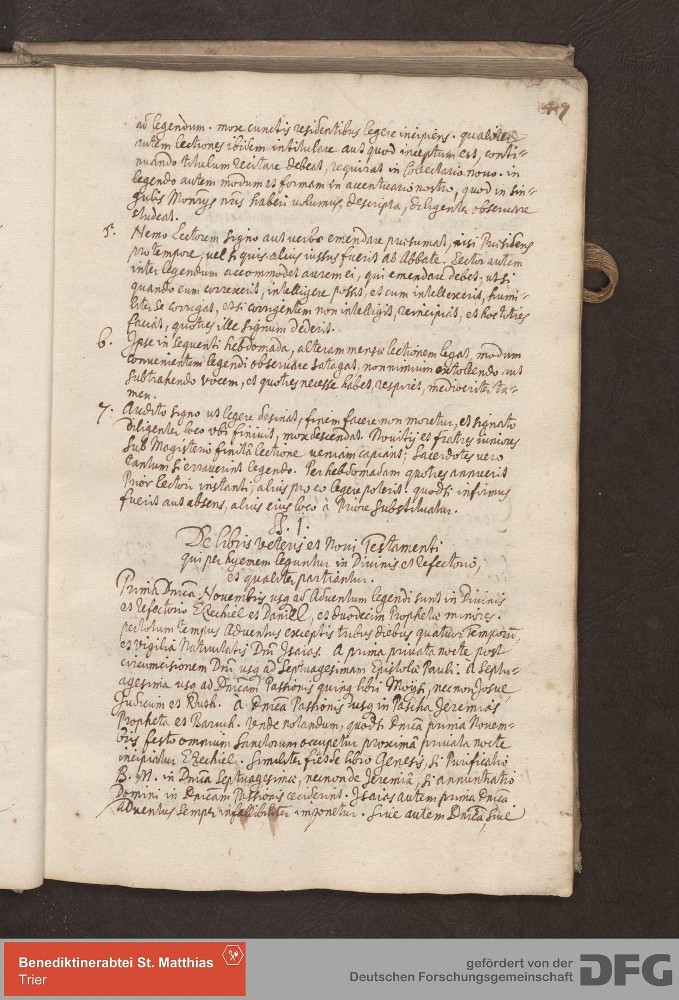 49
ad legendum. more cunctis residentibus legere incipiens. qualiter
autem lectiones ibidem intitulare aut quod inceptum est, conti-
nuando titulum recitare debeat, requirat in Collectario novo. in
legendo autem modum et formam in accentuario nostro, quod in sin-
gulis Monrys nris haberi volumus, descripta, diligenter observare
studeat.
5. Nemo Lectorem signo aut verbo emendare praesumat, nisi Praesidens
pro tempore, vel si quis alius iussus fuerit ab Abbate. Lector autem
inter legendum accommodet aurem ei, qui emendare debet. ut si
quando eum correxerit, intelligere possit, et cum intellexerit, humi-
liter se corrigat, et si corrigentem non intelligit, reincipiat, et hoc toties
faciat, quoties ille signum dederit.
6. Ipse in sequenti hebdomada, alteram mensae lectionem legat, modum
convenientem legendi observare satagat, non nimium extollendo aut
subtrahendo vocem, et quoties necesse habet, respiret, mediocriter ta-
men.
7. Audito signo ut legere desinat, finem facere non moretur, et signato
diligenter loco ubi finivit, mox descendat. Novitij et fratres iuniores
sub Magisterio finitâ lectione veniam capiant; sacerdotes vero
tantum si erraverint legendo. Per hebdomadam quoties annuerit
Prior lectori instanti, alius pro eo legere poterit. quodsi infirmus
fuerit aut absens, alius eius loco à Priore substituatur.
§. 1.
De libris veteris et Novi Testamenti
qui per hyemem leguntur in Divinis et refectorio,
et qualiter partiantur.
Primâ Dnicâ Novembris usq ad Adventum legendi sunt in Divinis
et refectorio Ezechiel et Daniel, et duodecim Prophetae minores.
per totum tempus Adventus exceptis tribus diebus quatuor Temporum,
et vigiliâ Nativitatis Dni Isaias. A prima privata nocte post
circumcisionem Dni usq ad Septuagesimam Epistolae Pauli. A Septu-
agesima usq ad Dnicam Passionis quinq libri Moysi, necnon Josue,
Judicum et Ruth. A Dnica Passionis usq in Pascha Jeremias
Propheta et Baruch. Unde notandum, quodsi Dnica prima Novem-
bris festo omnium Sanctorum occupetur proximâ privata nocte
incipiatur Ezechiel. Similiter fiet de libro Genesis, si Purificatio
B. M. in Dnica Septuagesimae, necnon de Jeremiâ, si annuntiatio
Domini in Dnicam Passionis ceciderint. Isaias autem prima Dnica
Adventus semper infallibiliter imponetur. Sive autem Dnicâ, sive
Benediktinerabtei St. Matthias
Trier
gefördert von der
Deutschen Forschungsgemeinschaft
DFG